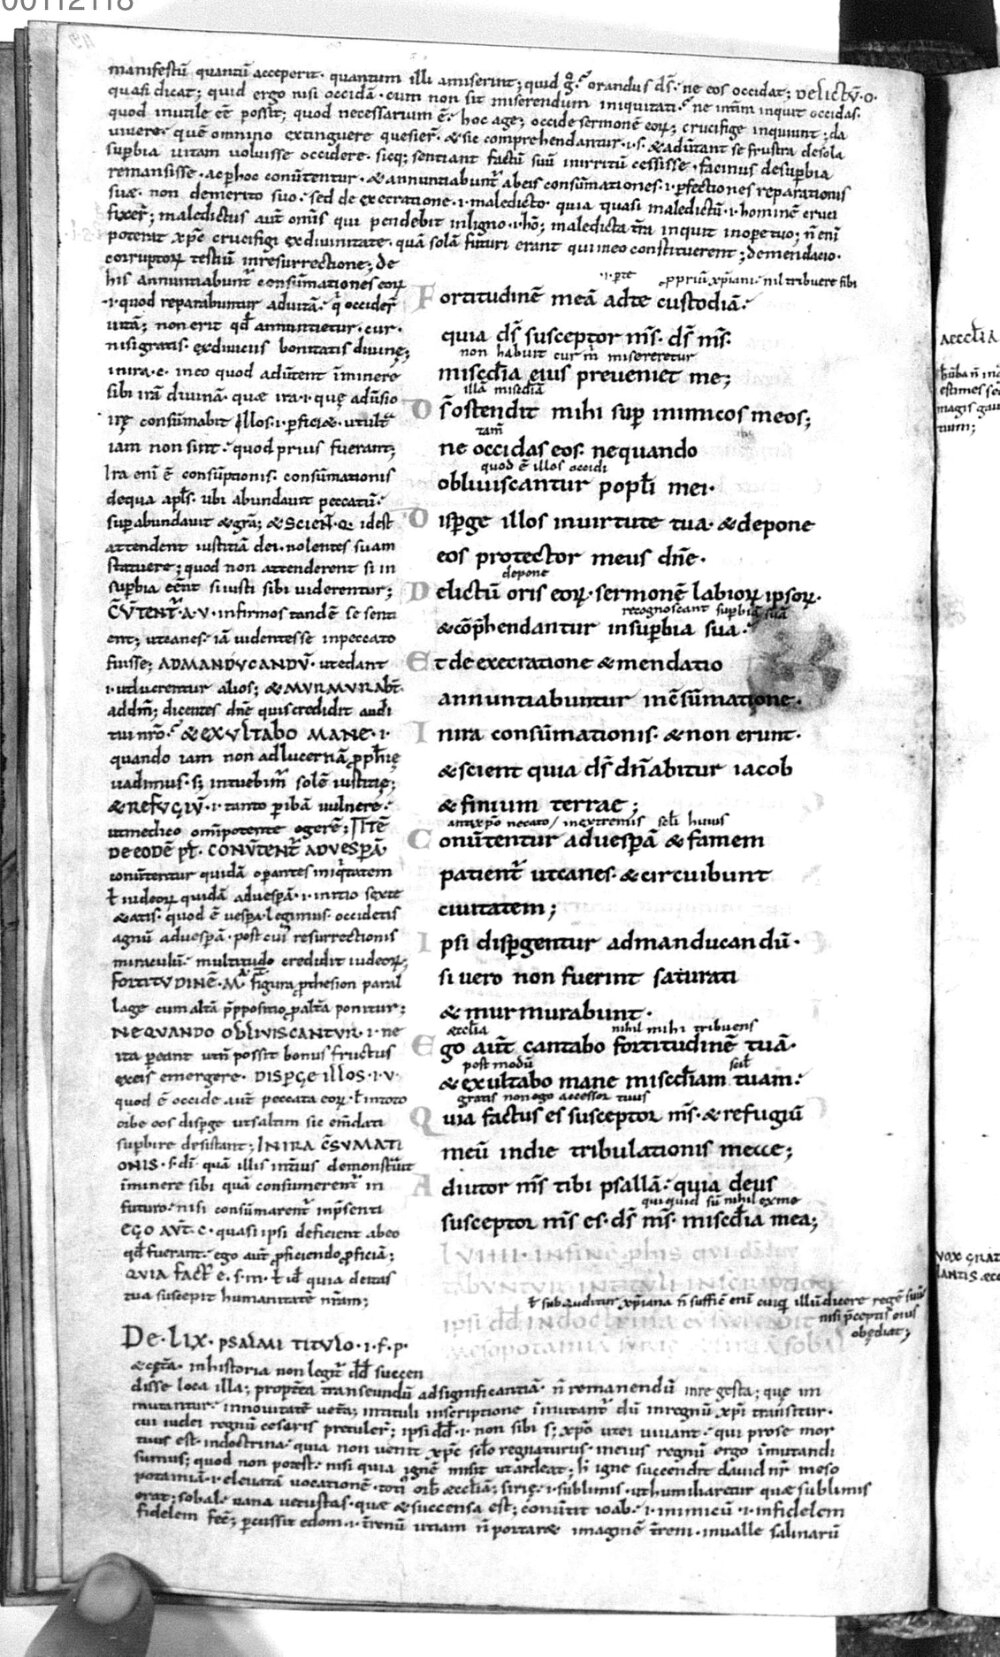 00112118
manifestū quantū acceperit· quantum illi amiserint; quid gͦ· orandus d̄s· ne eos occidat; DELICTV̄·O·
quasi dicat; quid ergo nisi occidā· cum non sit miserendum iniquitati· ne inquit occidas·
quod inutile eē possit; quod necessarium ē· hoc age; occide sermonē eoꝝ; crucifige inquiunt; da
uiuere· quē omnino extinguere quesier̄· & sic comprehendantur·i·s· se frustra de sola
supbia uitam uoluisse occidere· sicq; sentiant factū suū inirritū cessisse· facinus desupbia
remansisse· acphoc conūtentur· & annuntiabunt̄ abeis consūmationes·i·pfectiones reparationis
suae· non demerito suo· sed de execratione·i·maledicto· quia quasi maledictū·i·hominē cruci
fixer̄; maledictus aut̄ om̄is qui pendebit inligno·i·hō; maledicta t̄ra inquit inopere tuo; n̄ eni
poterat xp̄c crucifigi exdiuinitate· quā solā futuri erant qui ineo constituerent; demendacio·
corruptoꝝ testiū inresurrectione; de
his annuntiabunt̄ consūmationes eoꝝ
·i·quod reparabuntur aduitā· q̄ occider̄
uitā; non erit qd̄ annuntietur· cur·
nisi gratis· exdiuicus bonitatis diuinę;
inira·e· ineo quod adūtent īminere
sibi irā diuinā· quae ira·i·quę
irę consūmabit illos·i·pficiet· ut
iam non sint· quod prius fuerant;
Ira eni ē consūptionis· consūmationis
dequa apl̄s· ubi abundauit peccatū·
supabundauit & gr̄a; & SCIEN̄·Q· idest
attendent iustitiā dei· nolentes suam
statuere; quod non attenderent si in
supbia eēnt si iusti sibi uiderentur;
CŪTENT̄·A·V· infirmos tandē se senti
ent; utcanes· iā uidentesse inpeccato
fuisse; ADMANDVCANDV̄· utedant
·i·utlucrentur alios; & MVRMVRABT̄·
addm̄; dicentes dn̄e quis credidit audi
tui nr̄o· & EXVLTABO MANE·i·
quando iam non adlucernā pphię
uadimus· sꝫ intuebim̄ solē iustitię;
& REFVGIV̄·i·tanto pibā uulnere·
utmedico omipotente egerē; ITĒ
DE EODĒ Pt̄· CONV̄TENT̄ ADVESPA·
conūtentur quidā opantes iniqtatem
t̄ iudeoꝝ quidā aduespā·i·initio sexte
& atis· quod ē uespa· legimus· occidetis
agnū aduespā· post cui resurrectionis
miraculū· multitudo credidit iudeoꝝ;
FORTITVDINĒ·M· figura pthesion paral
lage cum alia pposirio palia ponitur;
NEQVANDO OBLIVISCANTVR·i·ne
ita peant utn̄ possit bonus fructus
exeis emergere· DISPGE ILLOS·i·v·
quod ē occide aut̄ peccata eoꝝ· t̄ intoto
orbe eos dispge utsaltim sic em̄dati
supbire desistant; INIRA C̄SVMATI
ONIS·s·di· quā illis intius demonstūit
īminere sibi quā consumerent̄ in
futuro· nisi consūmarent inpsenti
EGO AVT̄·C· quasi ipsi deficient abeo
qd̄ fuerant· ego aut̄ pficiendo pficiā;
QVIA FACT·E·s·m· t̄ id̄ quia deitas
tua suscepit humanitatē nr̄am;
·i·pte ppriū xpiani· nil tribuere sibi
Fortitudinē meā adte custodiā·
quia d̄s susceptor m̄s· d̄s m̄s·
non habuit cur m̄ misereretur
misc̄dia eius preueniet me;
illā misc̄diā
D̄s ostendit mihi sup inimicos meos;
tam̄
ne occidas eos· nequando
quod ē illos occidi
obliuiscantur popl̄i mei·
Dispge illos inuirtute tua· & depone
eos protector meus dn̄e·
depone
Delictū oris eoꝝ· sermonē labioꝝ ipsoꝝ·
recognoscant supbiā suā
& cōphendantur insupbia sua·
Et de execratione & mendatio
annuntiabuntur incsūmatione·
Inira consūmationis· & non erunt·
& scient quia d̄s dn̄abitur iacob
& finium terrae;
antixpo necato/ inextremis scli huius
Conūtentur aduespā & famem
patient̄ utcanes· & circuibunt
ciuitatem;
Ipsi dispgentur admanducandū·
si uero non fuerint saturati
& murmurabunt·
aecclia nihil mihi tribuens
Ego aut̄ cantabo fortitudinē tuā·
post modū scil
& exultabo mane misc̄diam tuam·
gratis non ego accessor tuus
Quia factus es susceptor m̄s· & refugiū
meū indie tribulationis meae;
Adiutor m̄s tibi psallā· quia deus
quicquid sū nihil exme
susceptor m̄s es· d̄s m̄s· misc̄dia mea;
LVIIII· INFINĒ· PHIS QVI
TABVNTVR INTITVLI INSCRIPTIONE
t̄ subauditur xpiana n̄ sufficē eni cuiq; illū dicere regē suū
nisi pceptis eius
obędiat;
IPSI DD̄ INDOCTRINA CV SVCCENDIT
MESOPOTAMIĀ SYRIE SOBAL
DE·LIX· PSALMI TITVLO·i·F·P·
& cęta· inhistoria non legit̄ dd̄ succen
disse loca illa; propt̄ea transeundū adsignificantiā· n̄ remanendū inre gesta; quę im
mutantur· innouitatē uet̄a; intituli inscriptione īmutant̄ dū inregnū xpi transitur·
cui iudei regnū cesaris pretuler̄; ipsi dd̄·i· non sibi sꝫ xpo utei uiuant· qui prose mor
tuus est· indoctrina· quia non uenit xp̄c sclo regnaturus· incuius regnū ergo īmutandi
sumus; quod non potest· nisi quia ignē misit utardeat; h̄ igne succendit dauid nr̄ meso
potamiā·i·eleuatā uocationē· toti orb̄ aecclīā; sirię·i·sublimis· uthumiliaretur quae sublimis
erat; sobal· uana uetustas· quae & succensa est; conūtit ioab·i·inimicū·i·infidelem
fidelem fec̄; pcussit edom·i·t̄renū utiam n̄ portaret imaginē t̄reni· inualle salinarū
AECCLĪA
magis gau
VOX GRAT
LANTIS AEC